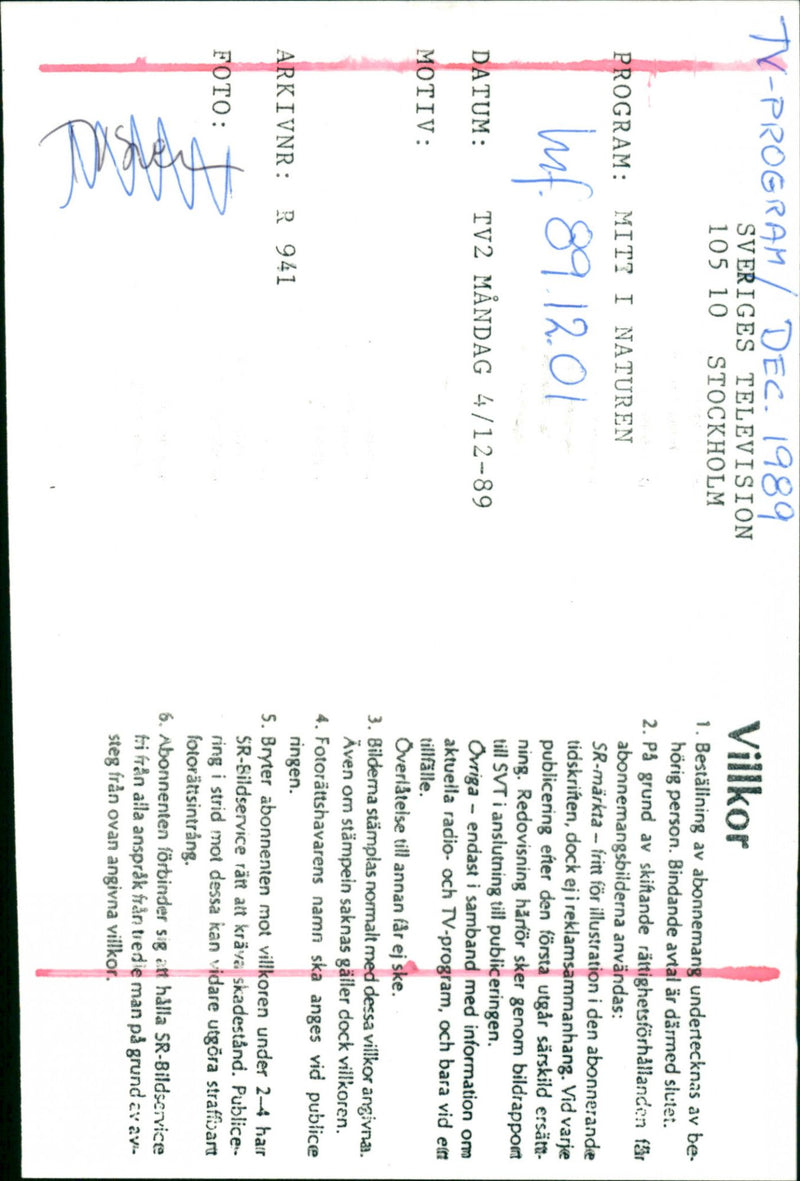 TV-PROGRAM / DEC. 1989
SVERIGES TELEVISION
105 10 STOCKHOLM
PROGRAM: MITT I NATUREN
inf. 89.12.01
DATUM: TV2 MÅNDAG 4/12-89
MOTIV:
ARKIVNR: R 941
FOTO:
Villkor
1. Beställning av abonnemang undertecknas av be-
hörig person. Bindande avtal är därmed slutet.
2. På grund av skiftande rättighetsförhållanden får
abonnemangsbilderna användas:
SR-märkta – fritt för illustration i den abonnerande
tidskriften, dock ej i reklamsammanhang. Vid varje
publicering efter den första utgår särskild ersätt-
ning. Redovisning härför sker genom bildrapport
till SVT i anslutning till publiceringen.
Övriga – endast i samband med information om
aktuella radio- och TV-program, och bara vid ett
tillfälle.
Överlåtelse till annan får ej ske.
3. Bilderna stämplas normalt med dessa villkor angivna.
Även om stämpeln saknas gäller dock villkoren.
4. Fotorättshavarens namn ska anges vid publice
ringen.
5. Bryter abonnenten mot villkoren under 2–4 har
SR-Bildservice rätt att kräva skadestånd. Publice-
ring i strid mot dessa kan vidare utgöra straffbart
fotorättsintrång.
6. Abonnenten förbinder sig att hålla SR-Bildservice
fri från alla anspråk från tredje man på grund av av-
steg från ovan angivna villkor.